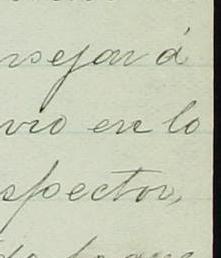 nsejar á
vio en lo
spector,